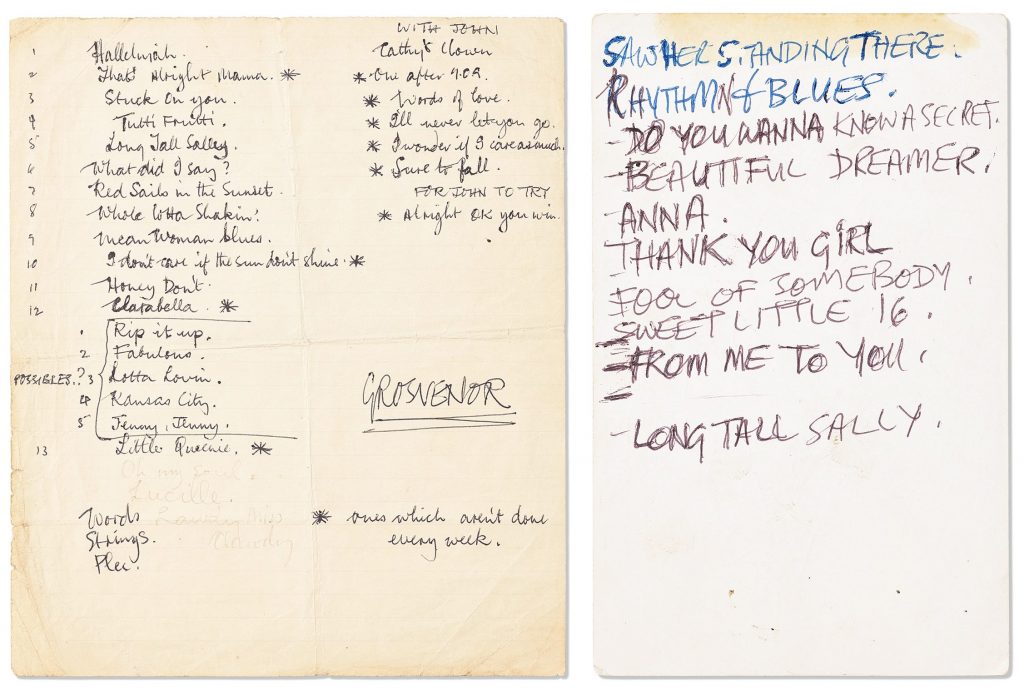 1 Hallelujah.
2 That's Alright Mama. *
3 Stuck On you.
4 Tutti Frutti.
5 Long Tall Salley.
6 What did I say?
7 Red Sails in the Sunset.
8 Whole Lotta Shakin'.
9 Mean Woman blues.
10 I don't care if the sun don't shine. *
11 Honey Don't.
12 Clarabella. *
1 Rip it up.
2 Fabulous.
POSSIBLES.? 3 Lotta Lovin.
4 Kansas City.
5 Jenny, Jenny.
13 Little Queenie. *
Oh my soul.
Lucille.
Lawdy Miss
Clawdy
Words
Strings.
Plec.
WITH JOHN
Cathy's Clown
* One after 9.0.9.
* Words of love.
* I'll never let you go.
* I wonder if I care as much.
* Sure to fall.
FOR JOHN TO TRY
* Alright OK you win.
GROSVENOR
* ones which aren't done
every week.
SAW HER STANDING THERE.
RHYTHM & BLUES.
-DO YOU WANNA KNOW A SECRET.
-BEAUTIFUL DREAMER.
-ANNA.
THANK YOU GIRL
FOOL OF SOMEBODY.
SWEET LITTLE 16.
-FROM ME TO YOU.
-LONG TALL SALLY.